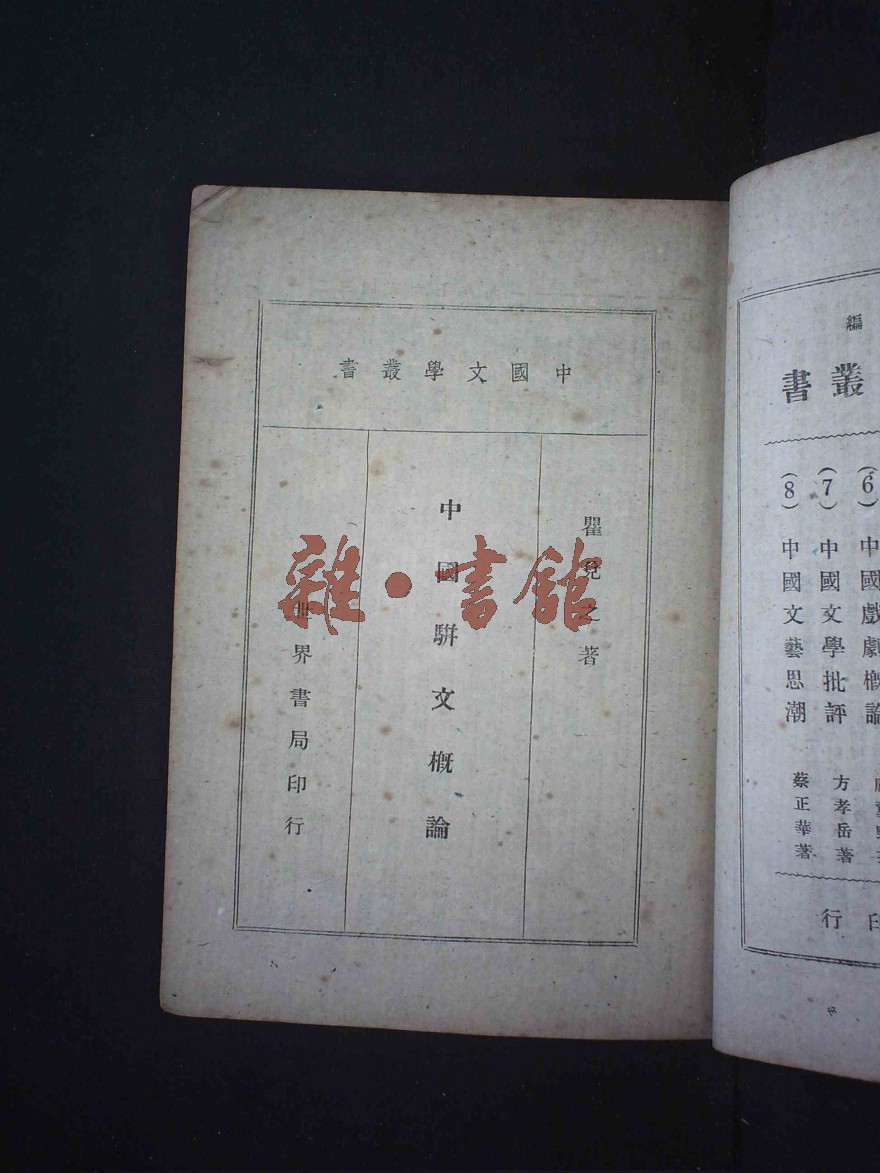 中國文學叢書
瞿兌之著
中國駢文概論
世界書局印行
雜·書館
編
叢書
(6)中國戲劇概論
(7)中國文學批評 方孝岳著
(8)中國文藝思潮 蔡正華著
印行